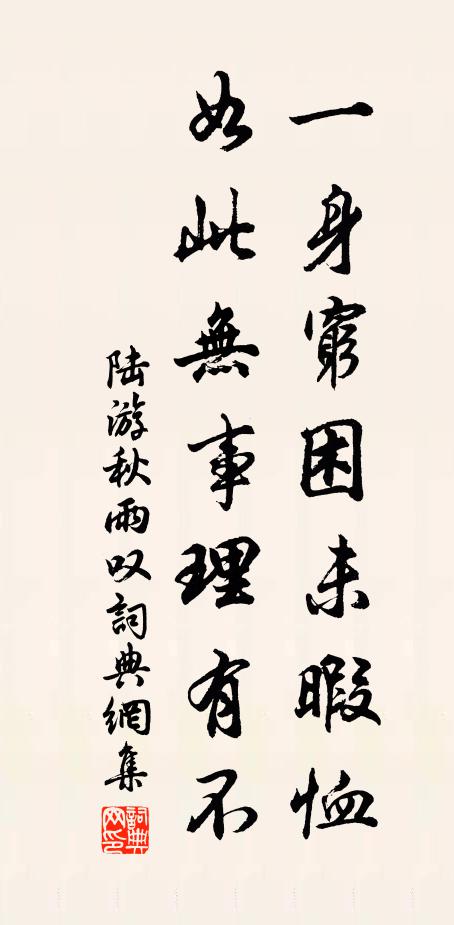 一身窮困未暇恤
如此無事理有不
陆游秋雨叹詞典網集
詞典网印